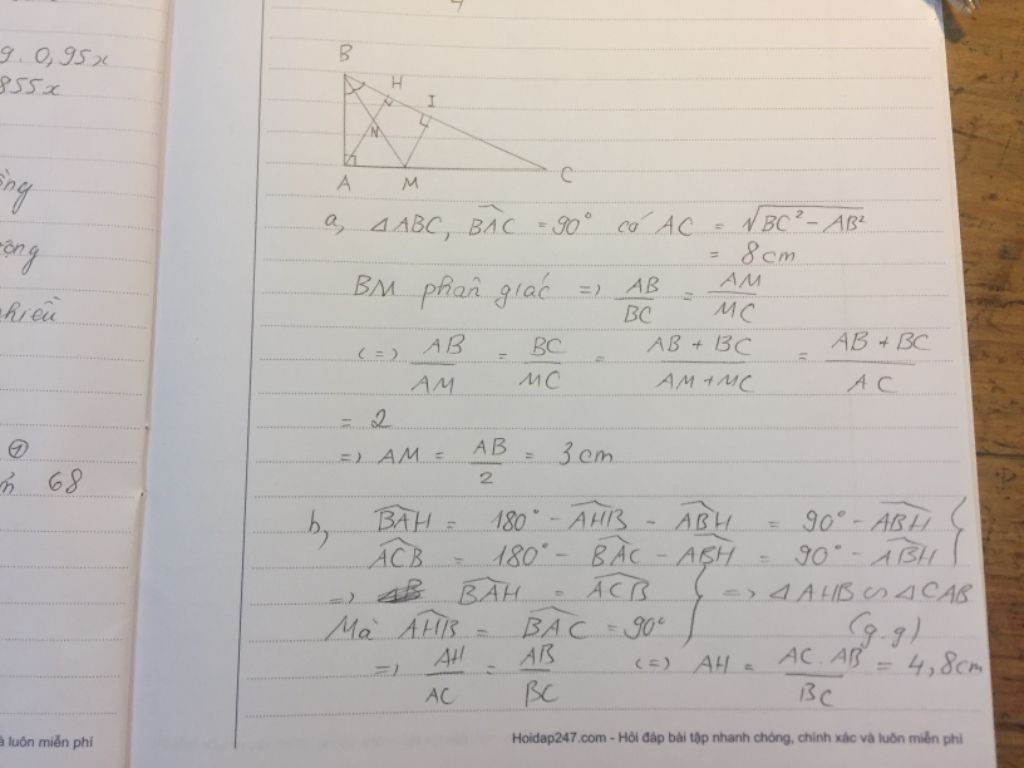 9.0,95x
855x
ồng
ộng
hiều
68
à luôn miễn phí
B
H
I
N
A
M
C
a, ΔABC, \widehat{BAC} = 90° có AC = √(BC² - AB²)
= 8cm
BM phân giác => AB/BC = AM/MC
<=> AB/AM = BC/MC = (AB + BC)/(AM + MC) = (AB + BC)/AC
= 2
=> AM = AB/2 = 3cm
b, \widehat{BAH} = 180° - \widehat{AHB} - \widehat{ABH} = 90° - \widehat{ABH}
\widehat{ACB} = 180° - \widehat{BAC} - \widehat{ABH} = 90° - \widehat{ABH}
=> \widehat{BAH} = \widehat{ACB} } => ΔAHB ∽ ΔCAB
Mà \widehat{AHB} = \widehat{BAC} = 90° (g.g)
=> AH/AC = AB/BC <=> AH = AC.AB/BC = 4,8cm
Hoidap247.com - Hỏi đáp bài tập nhanh chóng, chính xác và luôn miễn phí